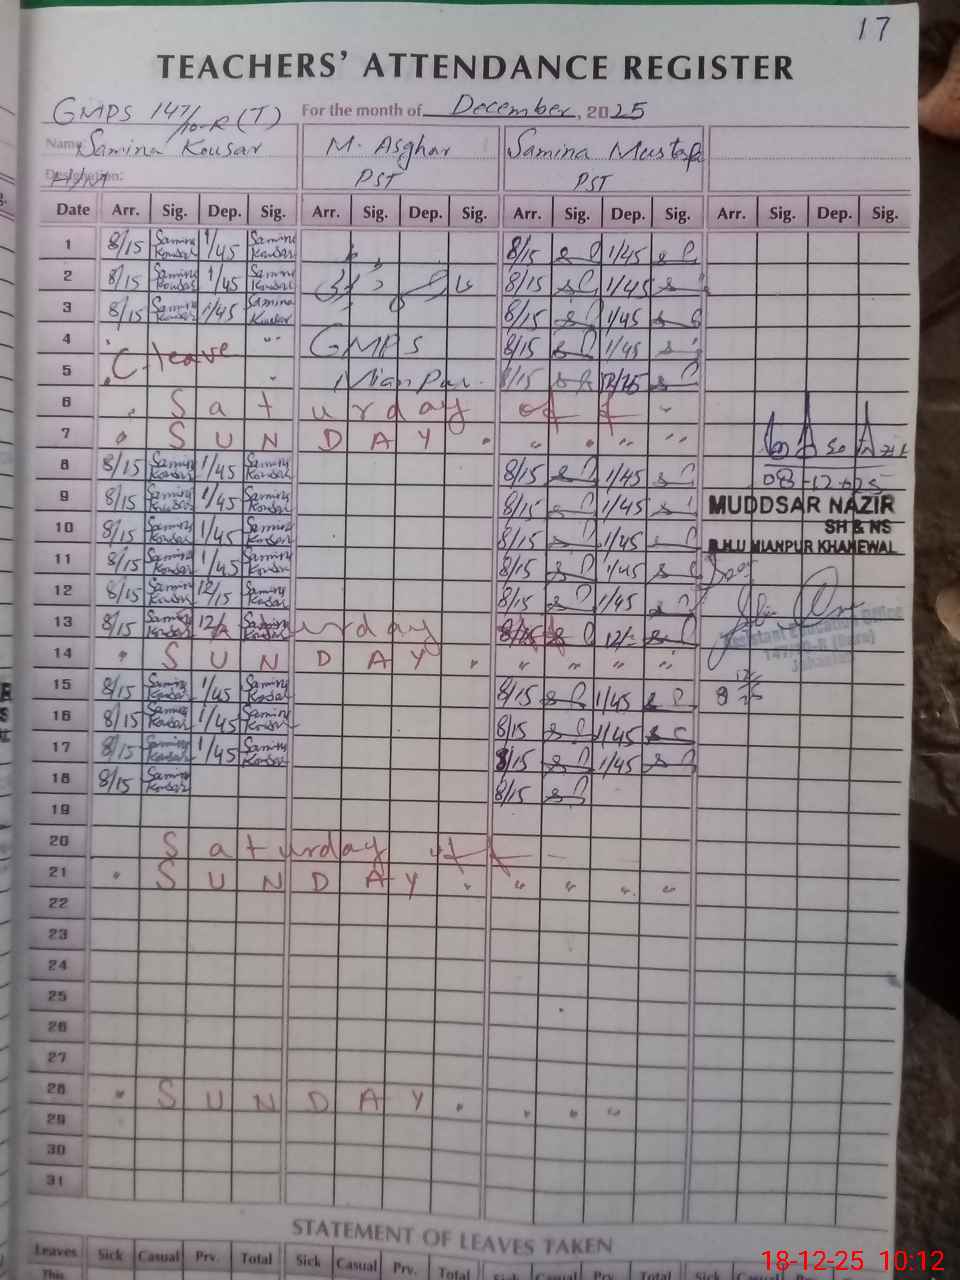 17
TEACHERS' ATTENDANCE REGISTER
GMPS 147/10-R (T) For the month of December, 2025
Name Samina Kousar M. Asghar Samina Mustafa
Designation: PST PST
Date Arr. Sig. Dep. Sig. Arr. Sig. Dep. Sig. Arr. Sig. Dep. Sig. Arr. Sig. Dep. Sig.
1 8/15 Samina Kousar 1/45 Samina Kousar 8/15 1/45
2 8/15 Samina Kousar 1/45 Samina Kousar 8/15 1/45
3 8/15 Samina Kousar 1/45 Samina Kousar 8/15 1/45
4 C leave GMPS 8/15 1/45
5 Mian Pur. 8/15 12/25
6 Saturday off
7 SUNDAY
8 8/15 Samina Kousar 1/45 Samina Kousar 8/15 1/45
08-12-25
9 8/15 Samina Kousar 1/45 Samina Kousar 8/15 1/45
MUDDSAR NAZIR
SH & NS
10 8/15 Samina Kousar 1/45 Samina Kousar 8/15 1/45
B.H.U MIANPUR KHANEWAL
11 8/15 Samina Kousar 1/45 Samina Kousar 8/15 1/45
12 8/15 Samina Kousar 12/15 Samina Kousar 8/15 1/45
13 8/15 Samina Kousar 12/ Samina Kousar urday 8/15 12/
Assistant Education Officer
14 SUNDAY
15 8/15 Samina Kousar 1/45 Samina Kousar 8/15 1/45
16 8/15 Samina Kousar 1/45 Samina Kousar 8/15 1/45
17 8/15 Samina Kousar 1/45 Samina Kousar 8/15 1/45
18 8/15 Samina Kousar 8/15
19
20 Saturday off
21 SUNDAY
22
23
24
25
26
27
28 SUNDAY
29
30
31
STATEMENT OF LEAVES TAKEN
Leaves Sick Casual Prv. Total Sick Casual Prv. Total Sick Casual Prv. Total Sick Casual
This
18-12-25 10:12